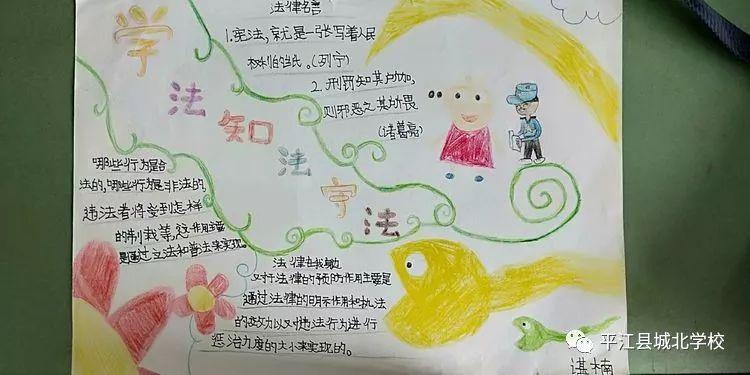 学法知法守法
法律名言
1.宪法,就是一张写着人民
权利的纸。(列宁)
2.刑罚知其所加,
则邪恶之其所畏
(诸葛亮)
哪些行为是合
法的,哪些行为是非法的,
违法者将受到怎样
的制裁等,
是通过立法和普法来实现。
法律在我
对于法律的预防作用主要是
通过法律的明示作用和执法
的效力以对违法行为进行
惩治力度的大小来实现的。
谌楠
平江县城北学校